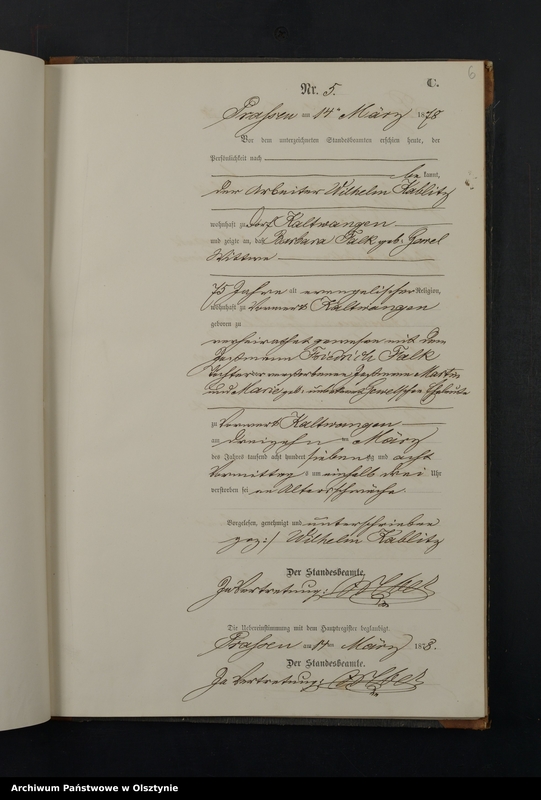 6
Nr. 5. C.
Prassen am 14ten März 1878
Vor dem unterzeichneten Standesbeamten erschien heute, der
Persönlichkeit nach
be kannt,
der Arbeiter Wilhelm Kablitz
wohnhaft zu Dorf Kaltwangen
und zeigte an, daß Barbara Falk geb:
Wittwe
75 Jahre alt evangelischer Religion,
wohnhaft zu Vorwerk Kaltwangen
geboren zu
verheirathet gewesen mit dem
Friedrich Falk
Tochter verstorbenen Martin
und Marie geb: Eheleute
zu Vorwerk Kaltwangen
am dreizehn ten März
des Jahres tausend acht hundert siebenzig und acht
Vormittag s um einhalb drei Uhr
verstorben sei an Altersschwäche.
Vorgelesen, genehmigt und unterschrieben
gez:/ Wilhelm Kablitz
Der Standesbeamte.
In Vertretung:
Die Uebereinstimmung mit dem Hauptregister beglaubigt.
Prassen am 14ten März 1878.
Der Standesbeamte.
In Vertretung:
Archiwum Państwowe w Olsztynie